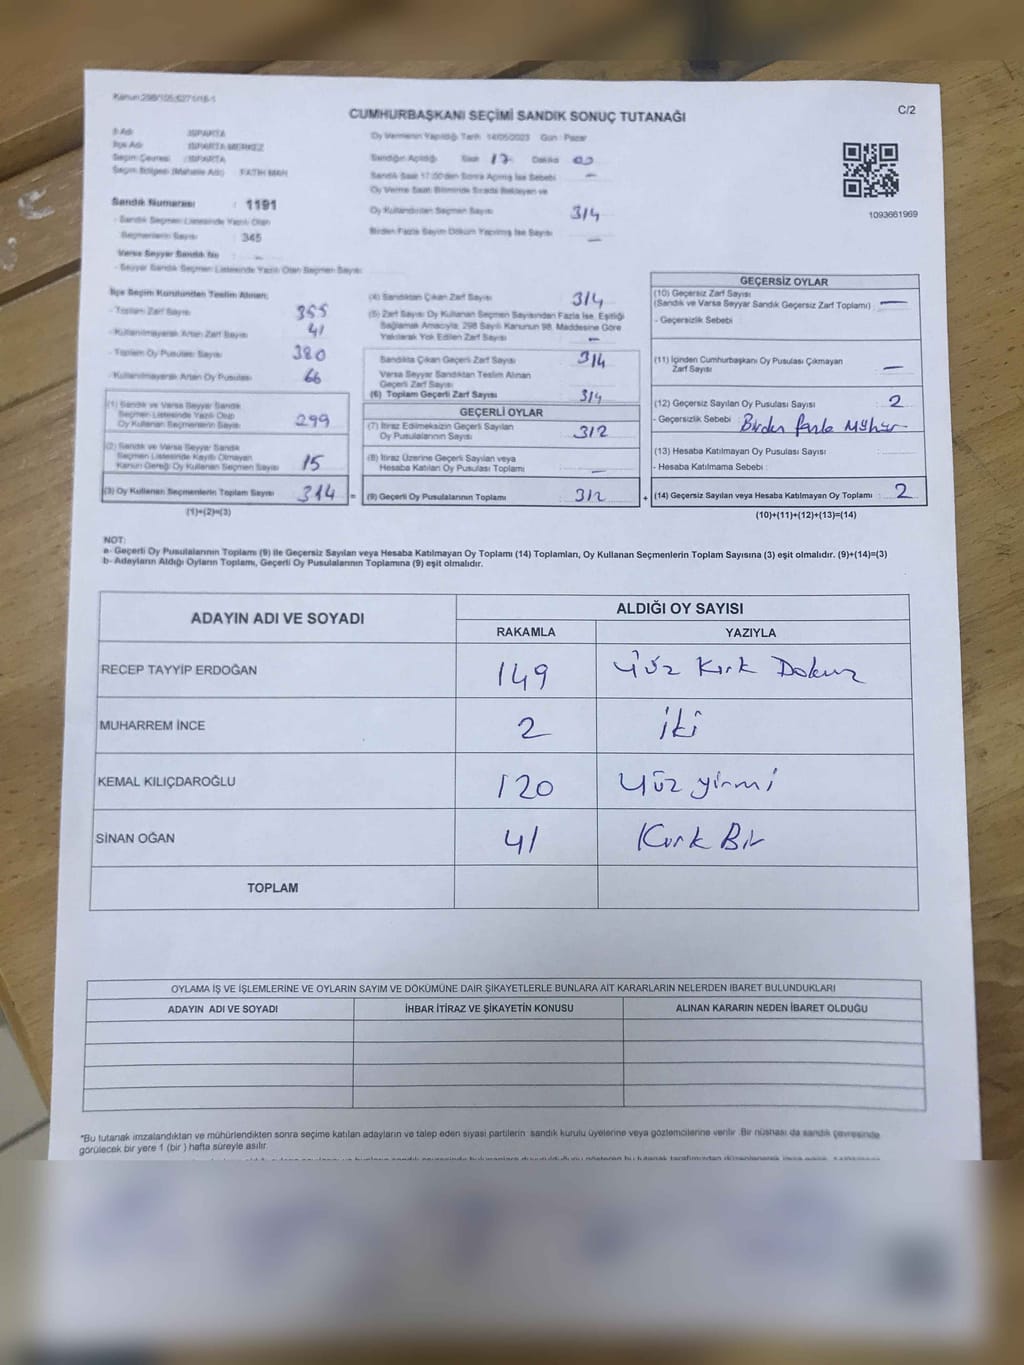 Kanun:298/105;6271/18-1
CUMHURBAŞKANI SEÇİMİ SANDIK SONUÇ TUTANAĞI
C/2
İl Adı : ISPARTA
İlçe Adı : ISPARTA MERKEZ
Seçim Çevresi : ISPARTA
Seçim Bölgesi (Mahalle Adı) : FATİH MAH
Oy Vermenin Yapıldığı Tarih 14/05/2023 Gün : Pazar
Sandığın Açıldığı Saat 17 Dakika 00
Sandık Saat 17:00'den Sonra Açılmış İse Sebebi —
Oy Verme Saati Bitiminde Sırada Bekleyen ve
Oy Kullandırılan Seçmen Sayısı 314
Birden Fazla Sayım Döküm Yapılmış İse Sayısı —
1093661969
Sandık Numarası : 1191
- Sandık Seçmen Listesinde Yazılı Olan
Seçmenlerin Sayısı : 345
Varsa Seyyar Sandık No : —
- Seyyar Sandık Seçmen Listesinde Yazılı Olan Seçmen Sayısı:
İlçe Seçim Kurulundan Teslim Alınan;
- Toplam Zarf Sayısı 355
- Kullanılmayarak Artan Zarf Sayısı 41
- Toplam Oy Pusulası Sayısı 380
- Kullanılmayarak Artan Oy Pusulası 66
(1) Sandık ve Varsa Seyyar Sandık
Seçmen Listesinde Yazılı Olup
Oy Kullanan Seçmenlerin Sayısı 299
(2) Sandık ve Varsa Seyyar Sandık
Seçmen Listesinde Kayıtlı Olmayan
Kanun Gereği Oy Kullanan Seçmen Sayısı 15
(3) Oy Kullanan Seçmenlerin Toplam Sayısı 314 =
(1)+(2)=(3)
(4) Sandıktan Çıkan Zarf Sayısı 314
(5) Zarf Sayısı Oy Kullanan Seçmen Sayısından Fazla İse, Eşitliği
Sağlamak Amacıyla; 298 Sayılı Kanunun 98. Maddesine Göre
Yakılarak Yok Edilen Zarf Sayısı —
Sandıkta Çıkan Geçerli Zarf Sayısı 314
Varsa Seyyar Sandıktan Teslim Alınan
Geçerli Zarf Sayısı
(6) Toplam Geçerli Zarf Sayısı 314
GEÇERLİ OYLAR
(7) İtiraz Edilmeksizin Geçerli Sayılan
Oy Pusulalarının Sayısı 312
(8) İtiraz Üzerine Geçerli Sayılan veya
Hesaba Katılan Oy Pusulası Toplamı —
(9) Geçerli Oy Pusulalarının Toplamı 312 +
GEÇERSİZ OYLAR
(10) Geçersiz Zarf Sayısı
(Sandık ve Varsa Seyyar Sandık Geçersiz Zarf Toplamı) —
- Geçersizlik Sebebi :
(11) İçinden Cumhurbaşkanı Oy Pusulası Çıkmayan
Zarf Sayısı —
(12) Geçersiz Sayılan Oy Pusulası Sayısı 2
- Geçersizlik Sebebi : Birden fazla Mühür
(13) Hesaba Katılmayan Oy Pusulası Sayısı
- Hesaba Katılmama Sebebi :
(14) Geçersiz Sayılan veya Hesaba Katılmayan Oy Toplamı : 2
(10)+(11)+(12)+(13)=(14)
NOT:
a- Geçerli Oy Pusulalarının Toplamı (9) ile Geçersiz Sayılan veya Hesaba Katılmayan Oy Toplamı (14) Toplamları, Oy Kullanan Seçmenlerin Toplam Sayısına (3) eşit olmalıdır. (9)+(14)=(3)
b- Adayların Aldığı Oyların Toplamı, Geçerli Oy Pusulalarının Toplamına (9) eşit olmalıdır.
ADAYIN ADI VE SOYADI
ALDIĞI OY SAYISI
RAKAMLA YAZIYLA
RECEP TAYYİP ERDOĞAN 149 Yüz Kırk Dokuz
MUHARREM İNCE 2 İki
KEMAL KILIÇDAROĞLU 120 Yüz yirmi
SİNAN OĞAN 41 Kırk Bir
TOPLAM
OYLAMA İŞ VE İŞLEMLERİNE VE OYLARIN SAYIM VE DÖKÜMÜNE DAİR ŞİKAYETLERLE BUNLARA AİT KARARLARIN NELERDEN İBARET BULUNDUKLARI
ADAYIN ADI VE SOYADI İHBAR İTİRAZ VE ŞİKAYETİN KONUSU ALINAN KARARIN NEDEN İBARET OLDUĞU
*Bu tutanak imzalandıktan ve mühürlendikten sonra seçime katılan adayların ve talep eden siyasi partilerin sandık kurulu üyelerine veya gözlemcilerine verilir. Bir nüshası da sandık çevresinde
görülecek bir yere 1 (bir) hafta süreyle asılır.